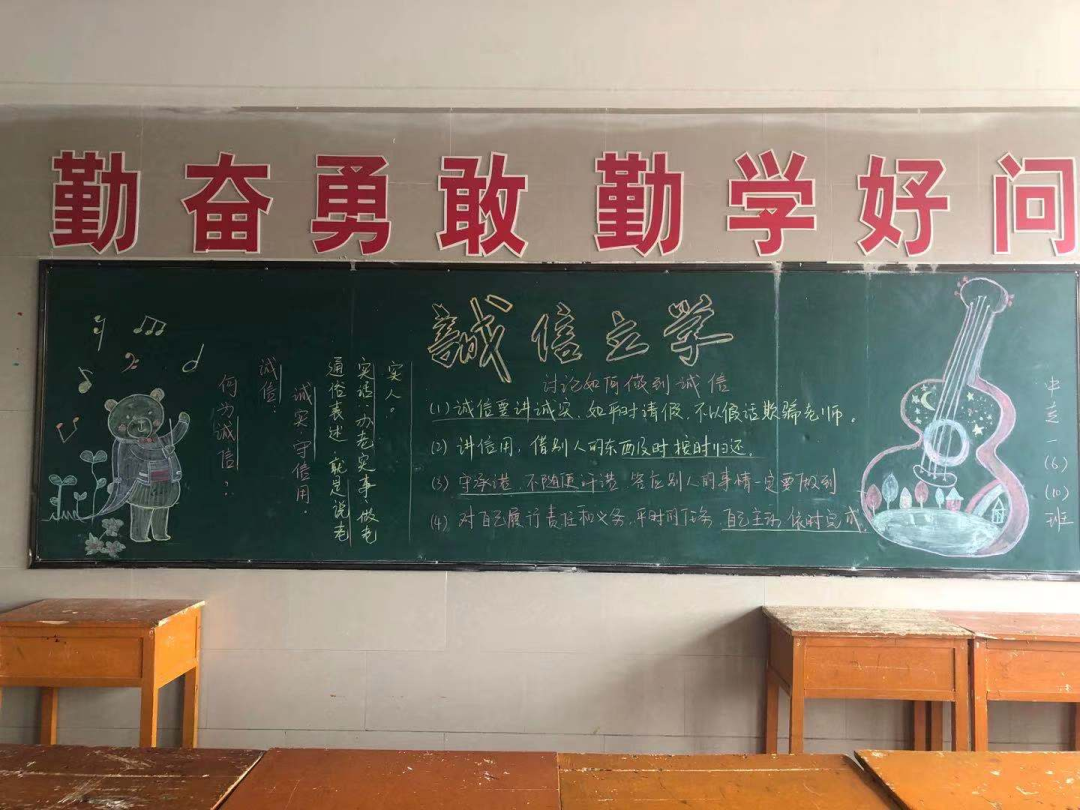 勤奋勇敢 勤学好问
誠信立学
何为诚信?
诚信:
诚实守信用.
通俗表述.就是说老
实话.办老实事.做老
实人。
讨论如何做到诚信
(1) 诚信要讲诚实,如平时请假,不以假话欺骗老师.
(2) 讲信用,借别人的东西及时按时归还.
(3) 守承诺 不随便许诺 答应别人的事情一定要做到
(4) 对自己履行责任和义务.平时 自己主动 依时完成
中运一(6)(10)班